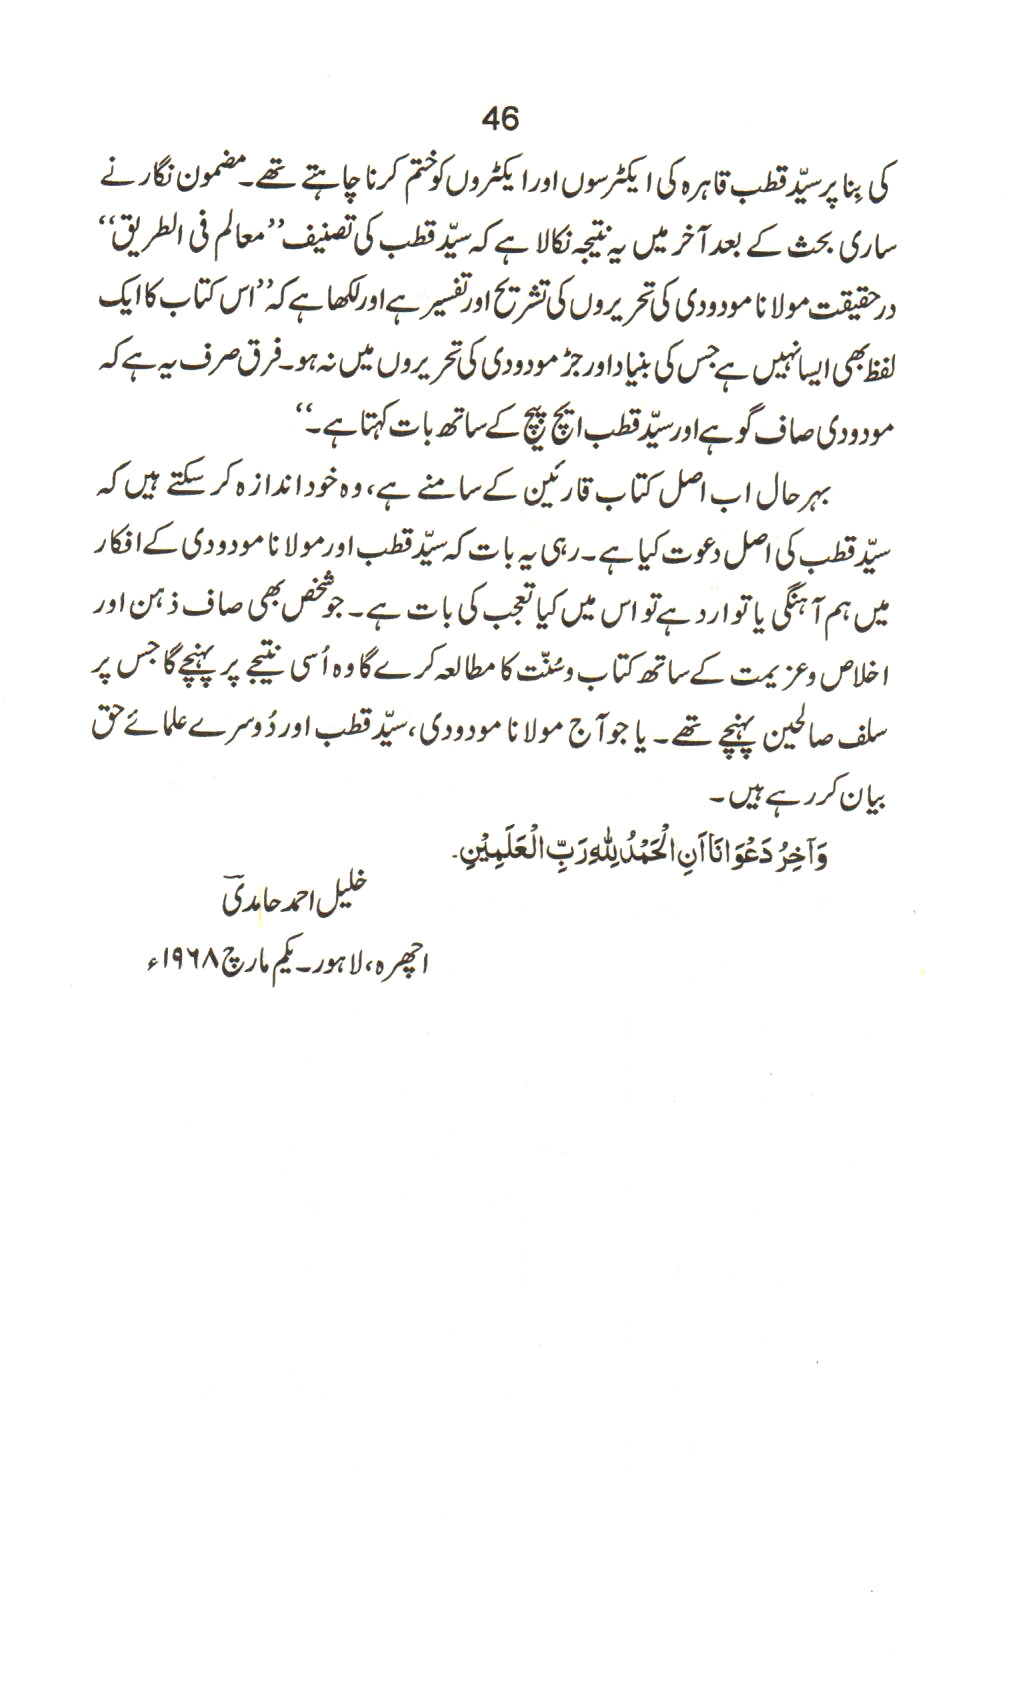 46
کی بِنا پر سیّد قطب قاہرہ کی ایکٹرسوں اور ایکٹروں کو ختم کرنا چاہتے تھے۔ مضمون نگار نے
ساری بحث کے بعد آخر میں یہ نتیجہ نکالا ہے کہ سیّد قطب کی تصنیف ”معالم فی الطریق“
درحقیقت مولانا مودودی کی تحریروں کی تشریح اور تفسیر ہے اور لکھا ہے کہ ”اس کتاب کا ایک
لفظ بھی ایسا نہیں ہے جس کی بنیاد اور جڑ مودودی کی تحریروں میں نہ ہو۔ فرق صرف یہ ہے کہ
مودودی صاف گو ہے اور سیّد قطب ایچ پیچ کے ساتھ بات کہتا ہے۔“
بہر حال اب اصل کتاب قارئین کے سامنے ہے، وہ خود اندازہ کر سکتے ہیں کہ
سیّد قطب کی اصل دعوت کیا ہے۔ رہی یہ بات کہ سیّد قطب اور مولانا مودودی کے افکار
میں ہم آہنگی یا توارد ہے تو اس میں کیا تعجب کی بات ہے۔ جو شخص بھی صاف ذہن اور
اخلاص و عزیمت کے ساتھ کتاب و سُنّت کا مطالعہ کرے گا وہ اُسی نتیجے پر پہنچے گا جس پر
سلف صالحین پہنچے تھے۔ یا جو آج مولانا مودودی، سیّد قطب اور دُوسرے علمائے حق
بیان کر رہے ہیں۔
وَآخِرُ دَعْوَانَا اَنِ الْحَمْدُ لِلّٰهِ رَبِّ الْعٰلَمِيْنِ۔
خلیل احمد حامدی
اچھرہ، لاہور۔ یکم مارچ ۱۹۶۸ء